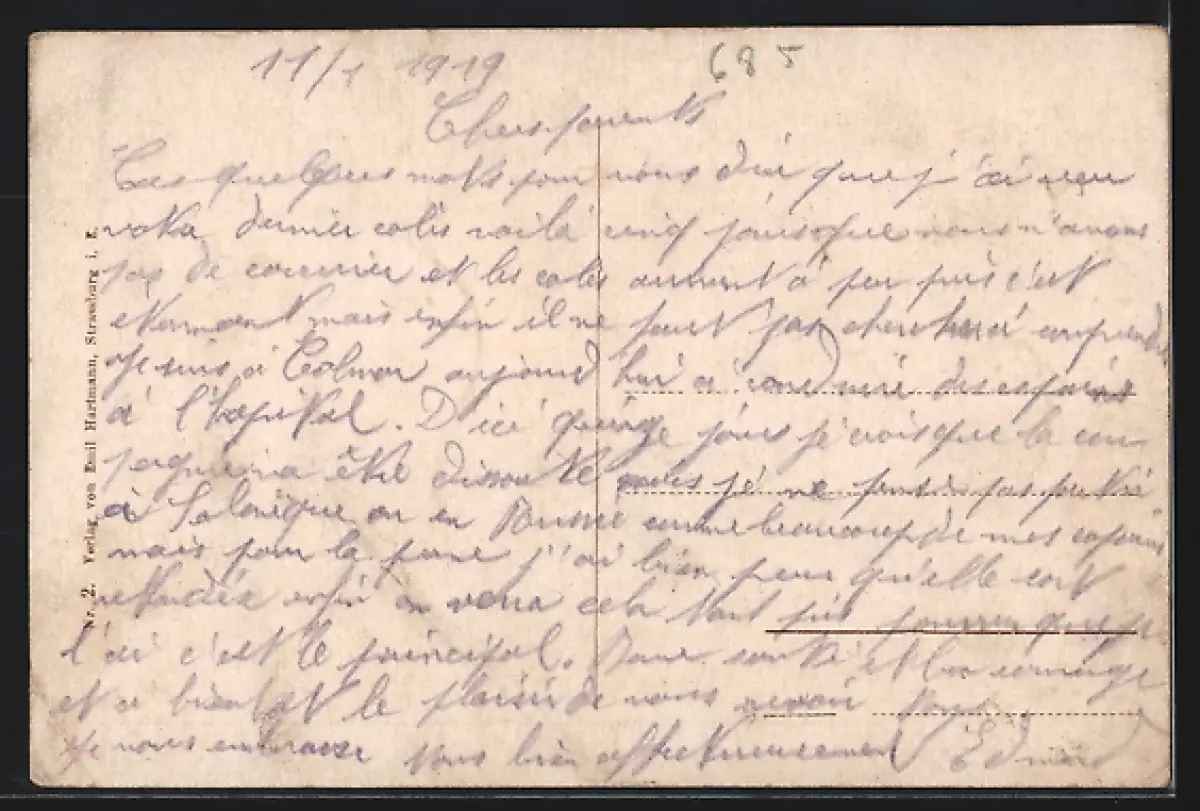 11/1 1919
685
Chers parents
Ces quelques mots pour vous dire que j'ai reçu
votre dernier colis voilà cinq jours que nous n'avons
pas de courrier et les colis arrivent à peu près c'est
étonnant mais enfin il ne faut pas chercher à comprendre
Je suis à Colmar aujourd'hui à conduire des copains
à l'hopital. D'ici quinze jours je crois que la com
pagnie va être dissoute mais je ne pense pas partir
à Salonique ou en Russie comme beaucoup de mes copains
mais pour la perme j'ai bien peur qu'elle soit
retardée enfin on verra cela tant pis pourvu que je
l'ai c'est le principal. Bonne santé et bon courage
et a bientôt le plaisir de vous revoir tous
Je vous embrasse tous bien affectueusement Edmond
Nr. 2. Verlag von Emil Hartmann, Strassburg i. E.